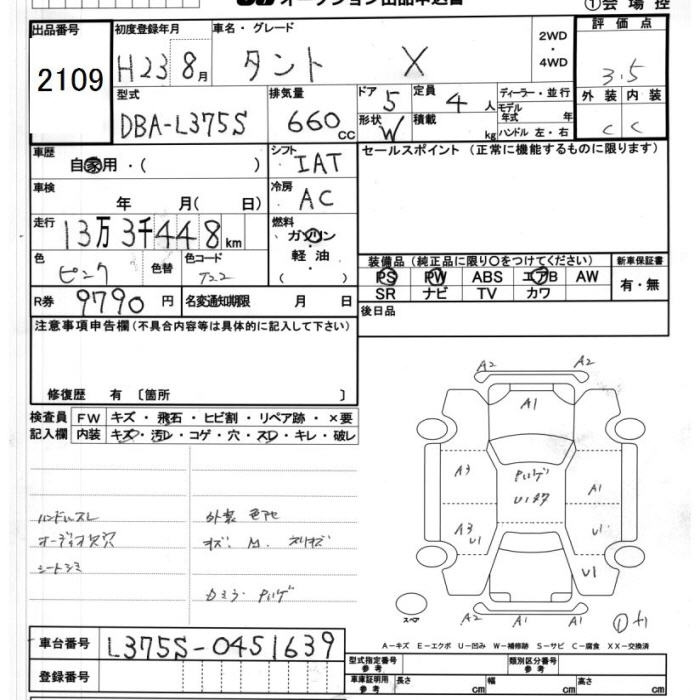 オークション出品申込書 ①会場控
出品番号 2109
初度登録年月 H23 8月
車名・グレード タント X
2WD・4WD
評価点 3.5
外装 C 内装 C
型式 DBA-L375S
排気量 660 CC
ドア 5 定員 4 人
形状 W 積載 kg
ディーラー・並行
モデル年式 年
ハンドル 左・右
車歴 自家用・( )
シフト IAT
セールスポイント (正常に機能するものに限ります)
車検 年 月( 日)
冷房 AC
走行 13万3千448km
燃料 ガソリン・軽油・( )
色 ピンク 色替 色コード T22
装備品(純正品に限り○をつけてください) 新車保証書
PS PW ABS エアB AW 有・無
SR ナビ TV カワ
R券 9790円 名変通知期限 月 日
後日品
注意事項申告欄(不具合内容等は具体的に記入して下さい)
修復歴 有 〔箇所 〕
検査員 FW キズ・飛石・ヒビ割・リペア跡・×要
記入欄 内装 キズ・汚レ・コゲ・穴・スレ・キレ・破レ
ハンドルスレ 外装 色アセ
オーディオ欠穴 キズ.M.スリキズ
シートシミ Dミラーハゲ
A2 A2
A1
A3 ハゲ A1
U1多
A3 U1 U1
U1
スペア A2 A1 A1 ①+1
A-キズ E-エクボ U-凹み W-補修跡 S-サビ C-腐食 XX-交換済
車台番号 L375S-0451639
型式指定番号 参考 類別区分番号 参考
登録番号
車庫証明用 参考 長さ cm 幅 cm 高さ cm